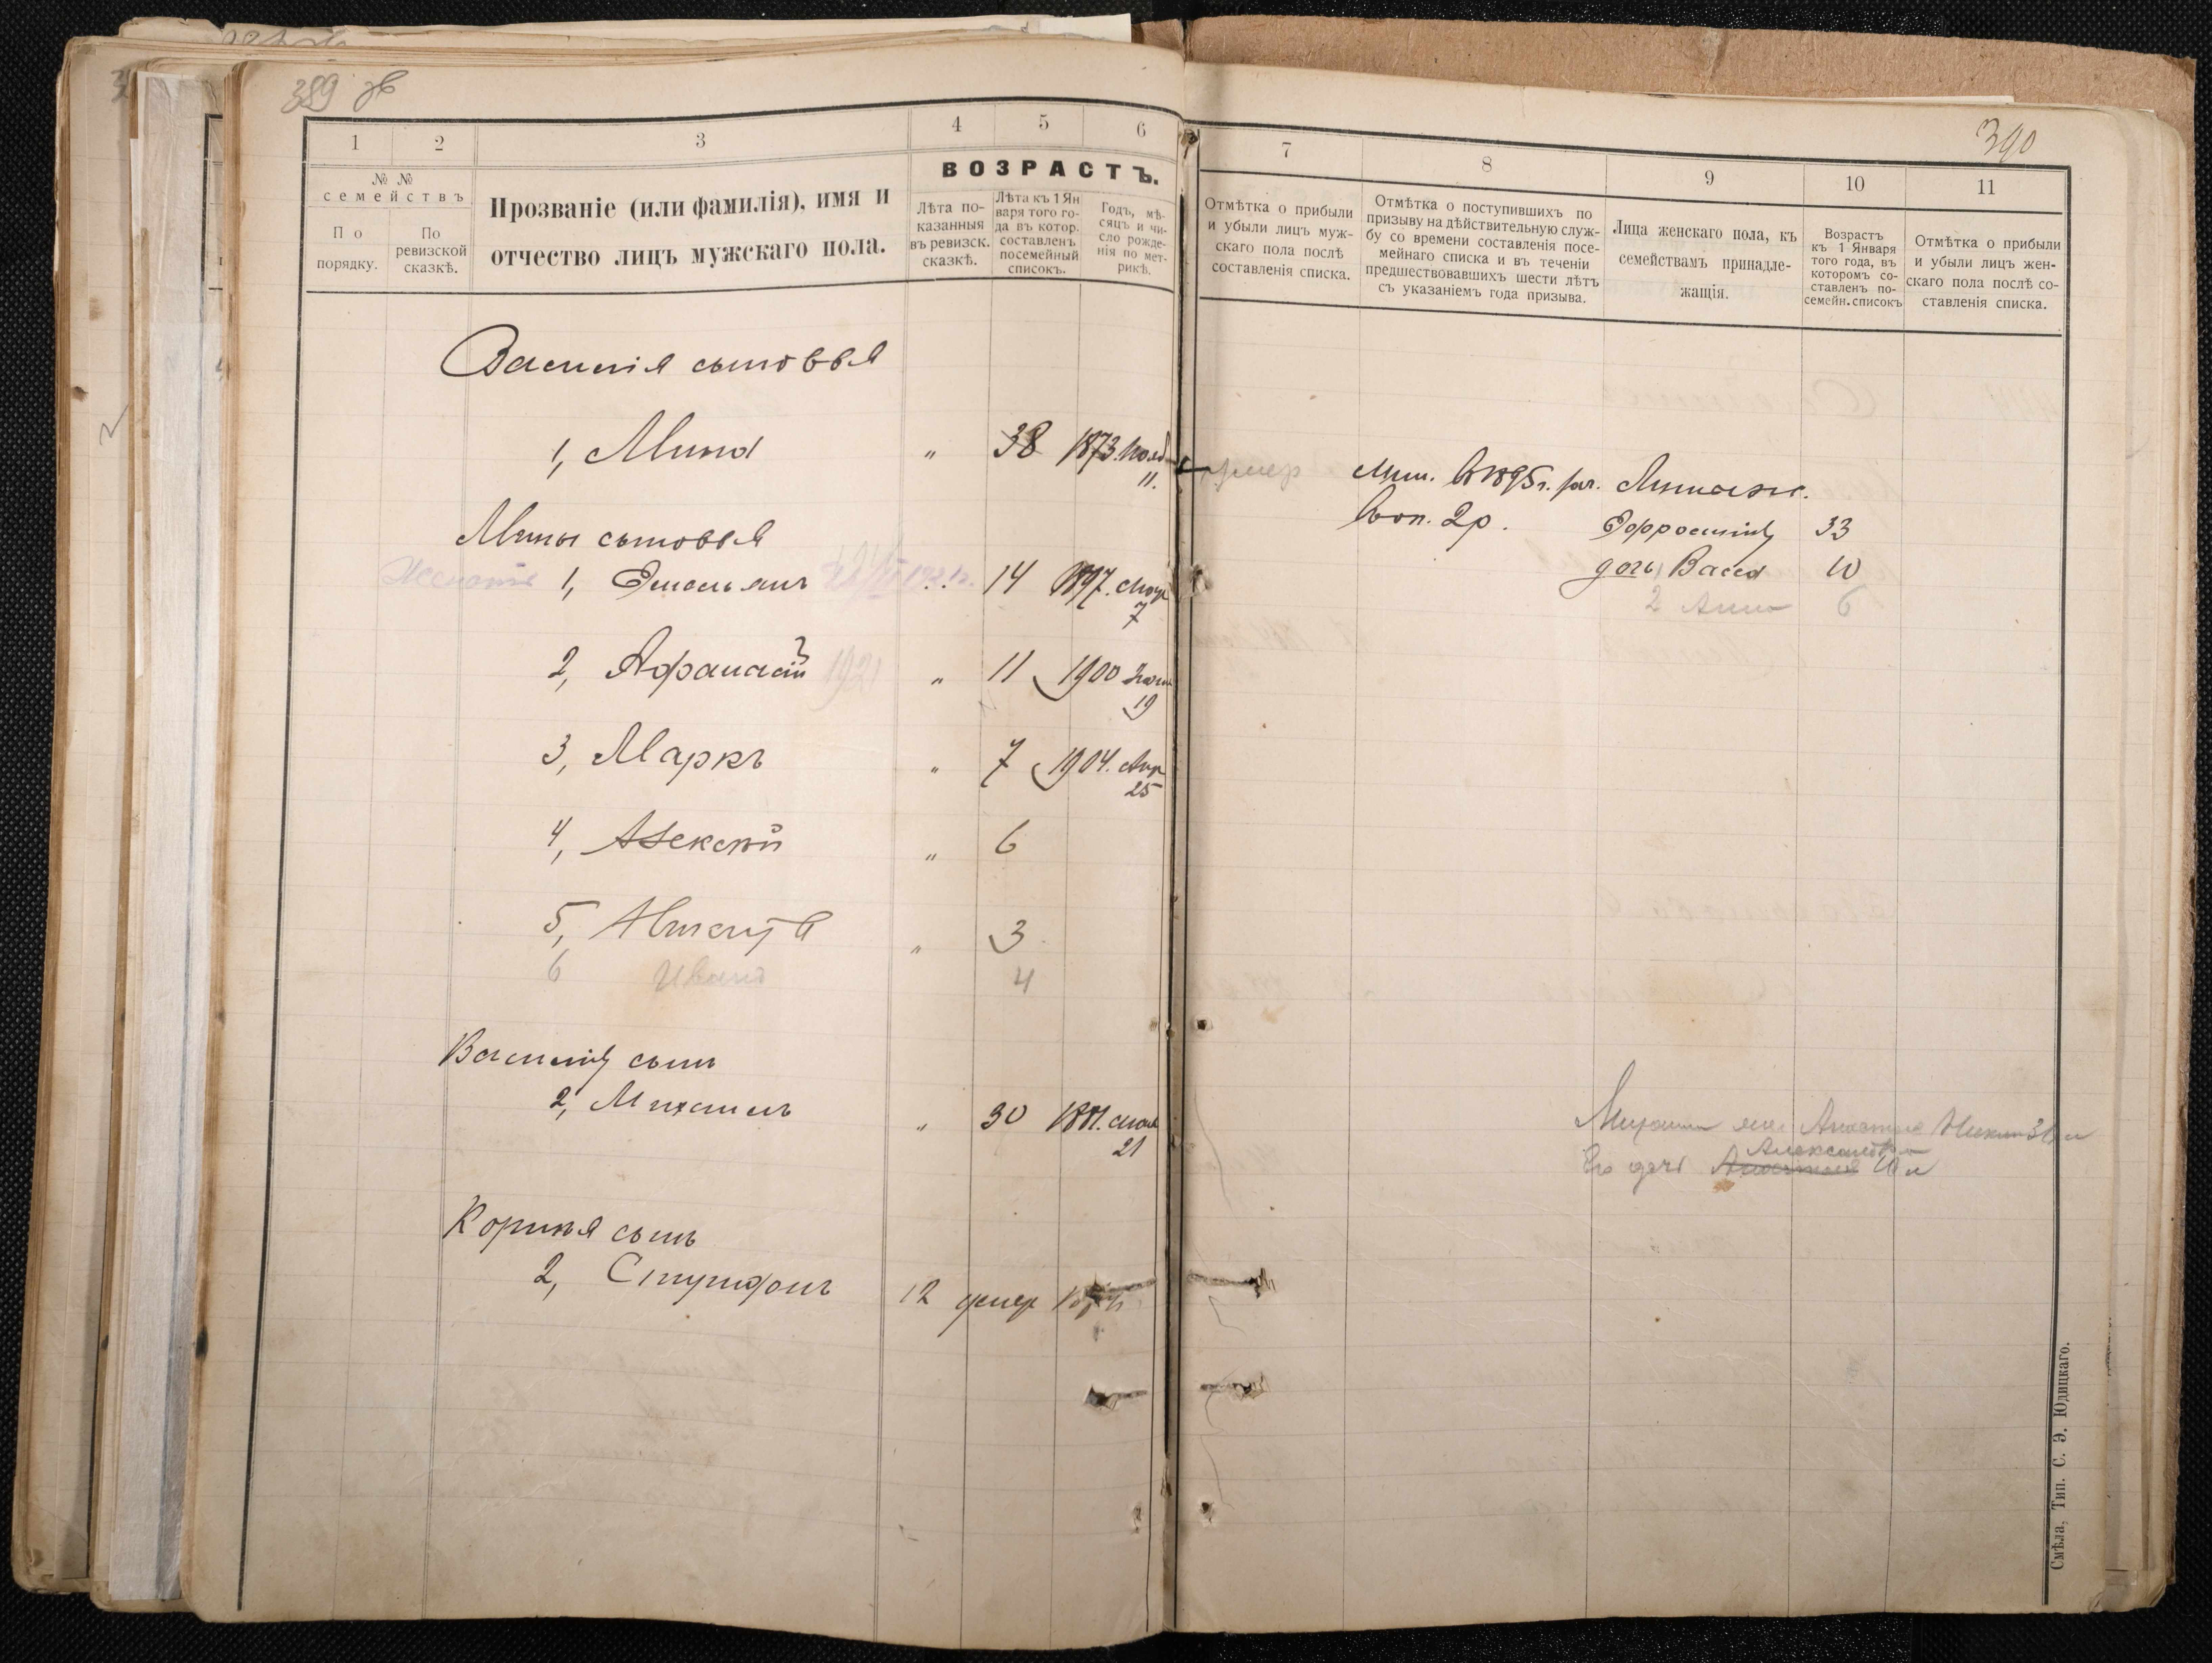 389 об
1
2
3
4
5
6
№ №
семействъ
По
порядку.
По
ревизской
сказкѣ.
Прозваніе (или фамилія), имя и
отчество лицъ мужскаго пола.
ВОЗРАСТЪ.
Лѣта по-
казанныя
въ ревизск.
сказкѣ.
Лѣта къ 1 Ян
варя того го-
да въ котор.
составленъ
посемейный
списокъ.
Годъ, мѣ-
сяцъ и чи-
сло рожде-
нія по мет-
рикѣ.
Василія сыновья
1, Мина " 38 1873. Нояб
11.
Мины сыновья
1, Емельянъ 14 1897. Мар
7
2, Афанасій 1921 " 11 1900
19
3, Маркъ " 7 1904. Апр
25
4, Алексѣй " 6
5, " 3
6 Иванъ 4
Василія сынъ
2, Михаилъ " 30 1881.
21
сынъ
2, 12 умер
390
7
8
9
10
11
Отмѣтка о прибыли
и убыли лицъ муж-
скаго пола послѣ
составленія списка.
Отмѣтка о поступившихъ по
призыву на дѣйствительную служ-
бу со времени составленія посе-
мейнаго списка и въ теченіи
предшествовавшихъ шести лѣтъ
съ указаніемъ года призыва.
Лица женскаго пола, къ
семействамъ принадле-
жащія.
Возрастъ
къ 1 Января
того года, въ
которомъ со-
ставленъ по-
семейн. списокъ
Отмѣтка о прибыли
и убыли лицъ жен-
скаго пола послѣ со-
ставленія списка.
умер въ 1895 г. Мины ж.
2 р. Ефросинія 33
дочь Васса 10
2 Анна 6
Михаила
Александра
Его дочь 10 л
Смѣла, Тип. С. Э. Юдицкаго.